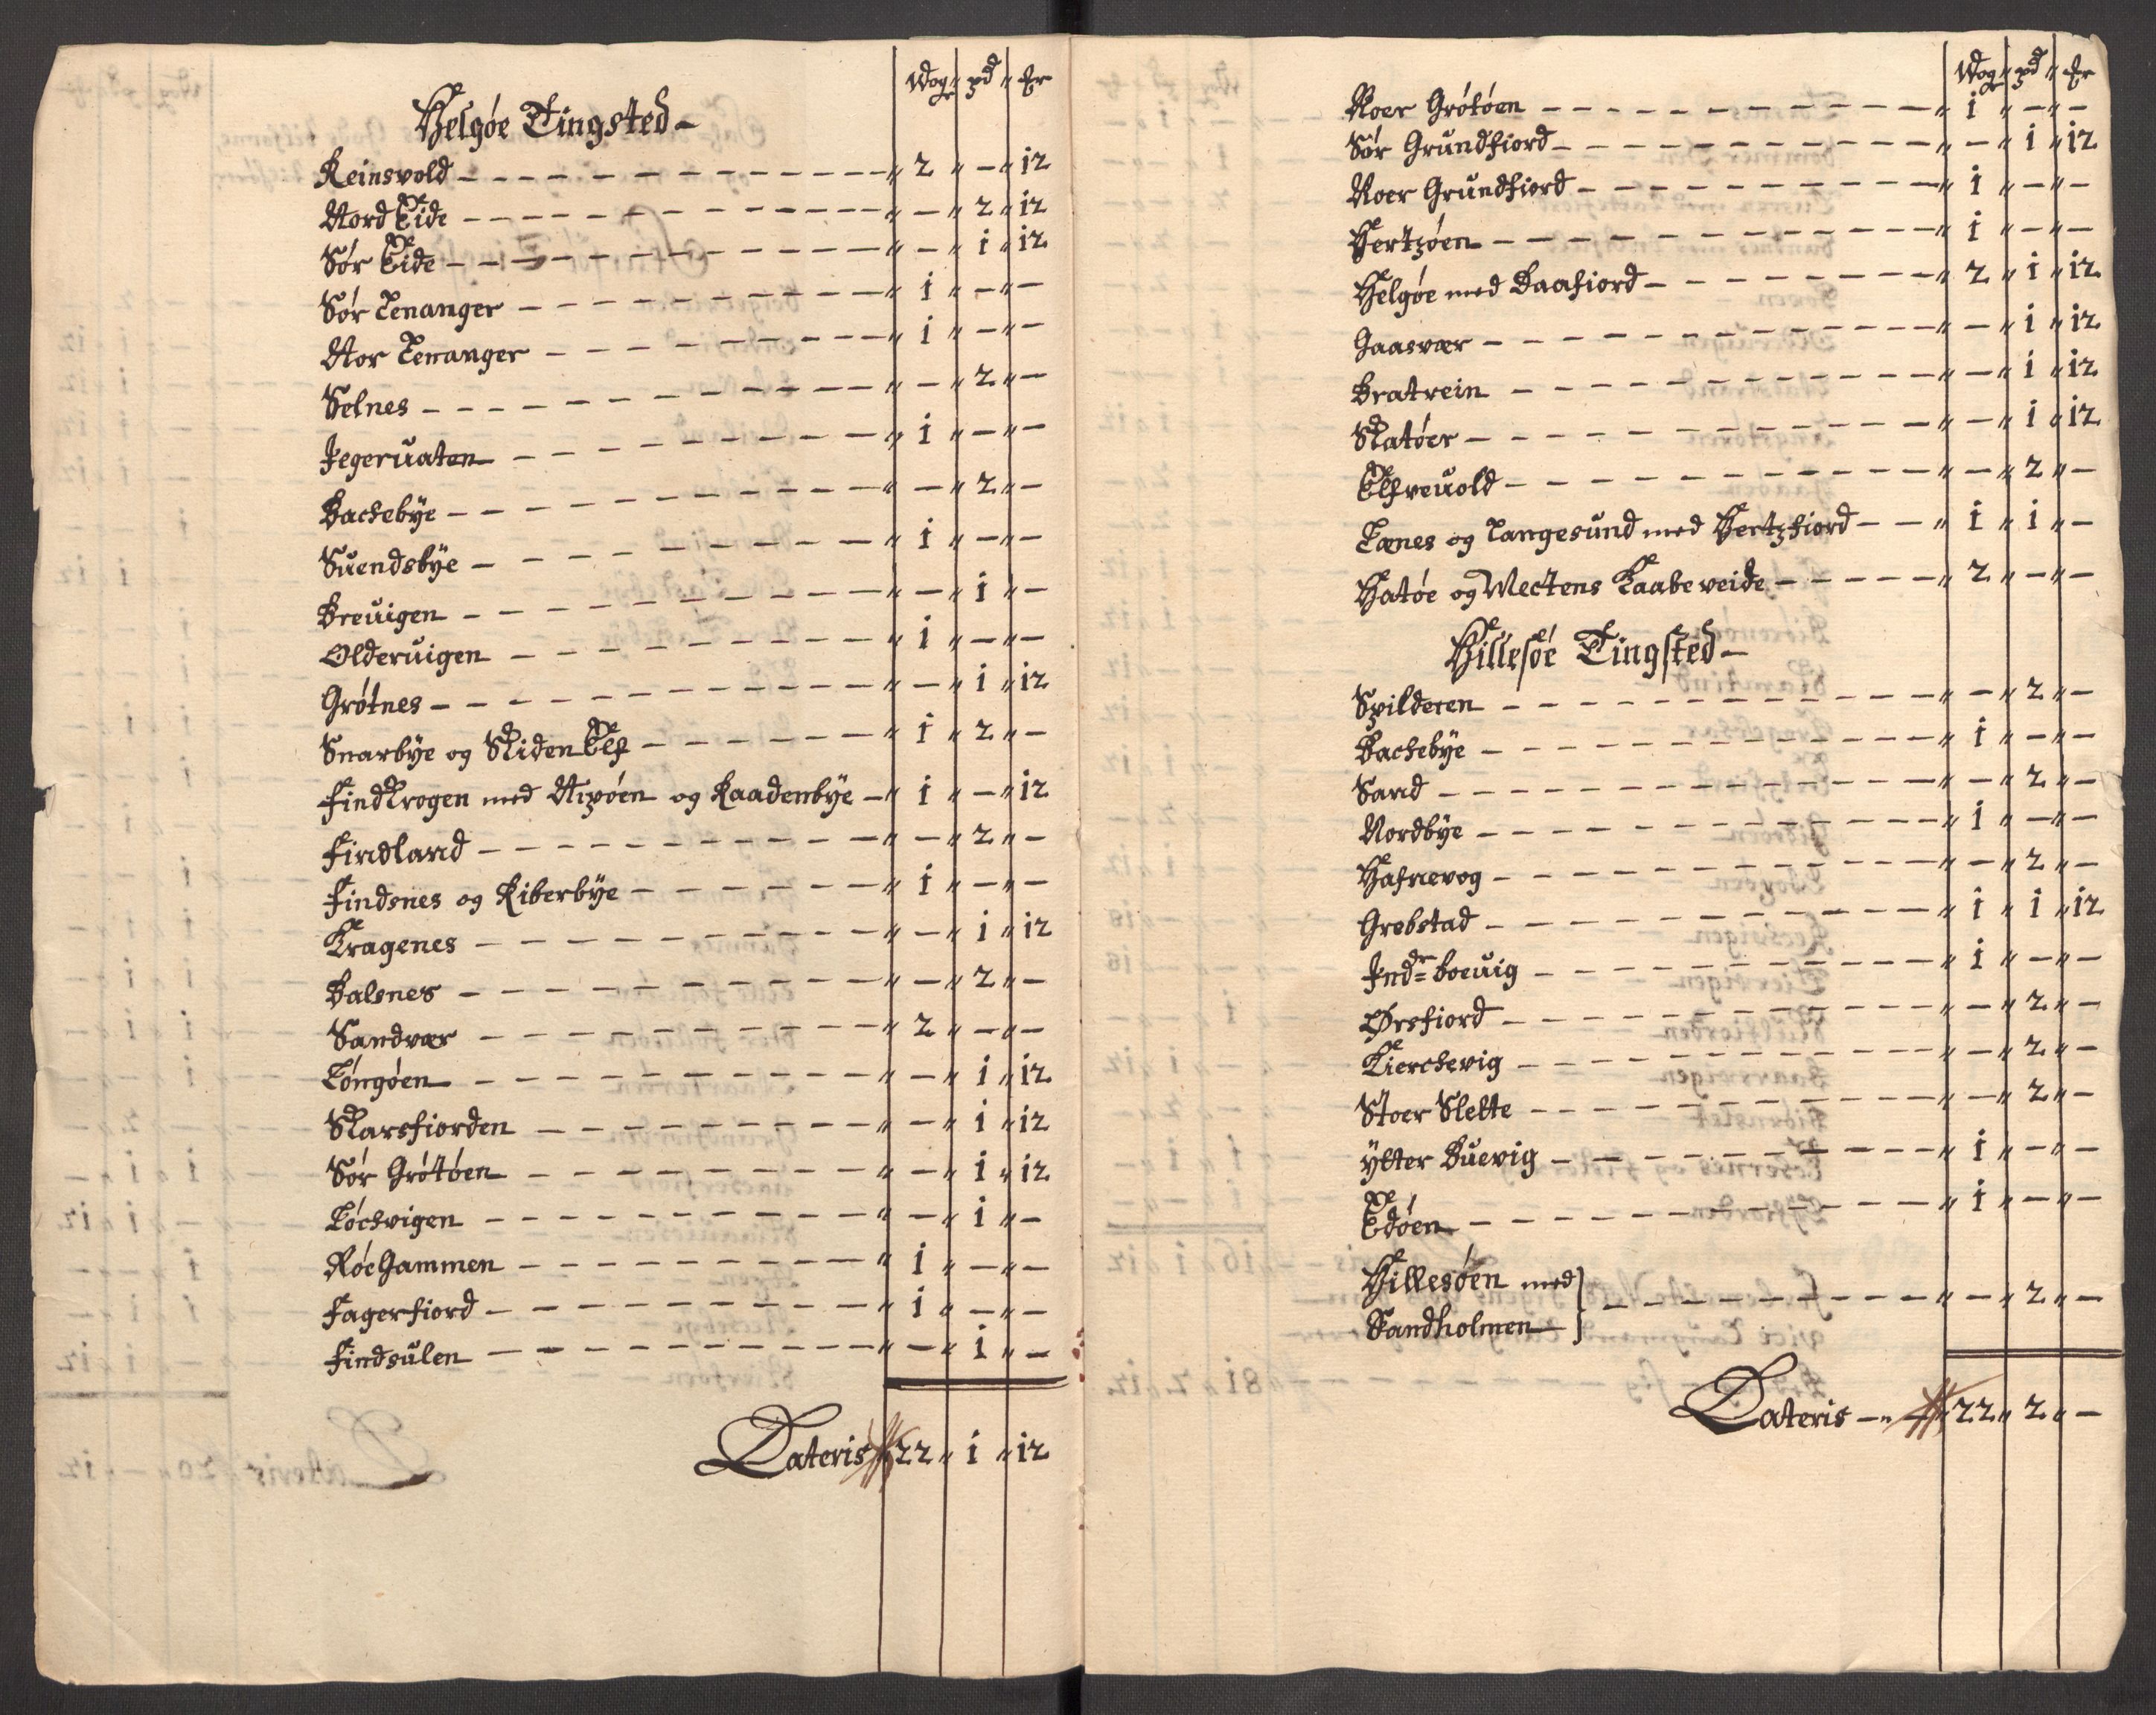 Wog " pd " Er
Helgøe Tingsted -
Reinsvold - " 2 " - " 12
Nord Eide - " - " 2 " 12
Sør Eide - " - " 1 " 12
Sør Lenanger - " 1 " - " -
Nor Lenanger - " 1 " - " -
Selnes - " - " 2 " -
Jegeruaten - " 1 " - " -
Bachebÿe - " - " 2 " -
Suendsbÿe - " 1 " - " -
Breuigen - " - " 1 " -
Olderuigen - " 1 " - " -
Grøtnes - " - " 1 " 12
Snarbÿe og Skiden Elf - " 1 " 2 " -
Findkrogen med Nipøen og Raadenbÿe - " 1 " - " 12
Findland - " - " 2 " -
Findsnes og Riberbÿe - " 1 " - " -
Kragenes - " - " 1 " 12
Balsnes - " - " 2 " -
Sandvær - " 2 " - " -
Løngøen - " - " 1 " 12
Skarsfiorden - " - " 1 " 12
Sør Grøtøen - " - " 1 " 12
Løchvigen - " - " 1 " -
Røegammen - " 1 " - " -
Fagerfiord - " 1 " - " -
Findsulen - " - " 1 " -
Lateris 22 " 1 " 12
Wog " pd " Er
Noer Grøtøen - " 1 " - " -
Sør Grundfiord - " - " 1 " 12
Noer Grundfiord - " 1 " - " -
Hertzøen - " 1 " - " -
Helgøe med Baafiord - " 2 " 1 " 12
Gaasvær - " - " 1 " 12
Bratrein - " - " 1 " 12
Skatøer - " - " 1 " 12
Elfveuold - " - " 2 " -
Lanes og Langesund med Hertzfiord - " 1 " 1 " -
Hatøe og Mectens Kaabeveide - " 2 " - " -
Hillesøe Tingsted -
Spilderen - " - " 2 " -
Bachebÿe - " 1 " - " -
Sand - " - " 2 " -
Nordbÿe - " 1 " - " -
Hafnevog - " - " 2 " -
Grebstad - " 1 " 1 " 12
Indr= boeuig - " 1 " - " -
Ørsfiord - " - " 2 " -
Kierchevig - " - " 2 " -
Stoer Slette - " - " 2 " -
ÿtter Buevig - " 1 " - " -
Edøen - " 1 " - " -
Hillesøen med
Sandholmen } - " - " 2 " -
Lateris - " 22 " 2 " -